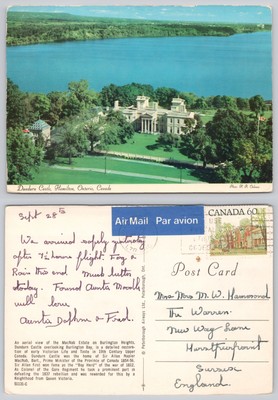 Dundurn Castle, Hamilton, Ontario, Canada
Sept 28th
We arrived safely yesterday
after 7½ hours flight. Foggy &
Rain this end. Much better
today. Found Aunta
well love
Auntie Daphne & Fred.
An aerial view of the MacNab Estate on Burlington Heights.
Dundurn Castle overlooking Burlington Bay, is a detailed restora-
tion of early Victorian Life and Times in 19th Century Upper
Canada. Dundurn Castle was the home of Sir Allan Napier
MacNab, Bart., Prime Minister of the Province of Canada 1854-56.
Sir Allan First was known as the "Boy Hero" of the WAR of 1812.
As Colonel of the Gore Regiment he took a prominent part in
defeating the 1837 rebellion and was rewarded for this by a
Knighthood from Queen Victoria.
Air Mail Par avion
CANADA 60
Post Card
Mrs M. W. Hammond
The Warren
New Way Lane
Hurstpierpoint
Sussex
England.